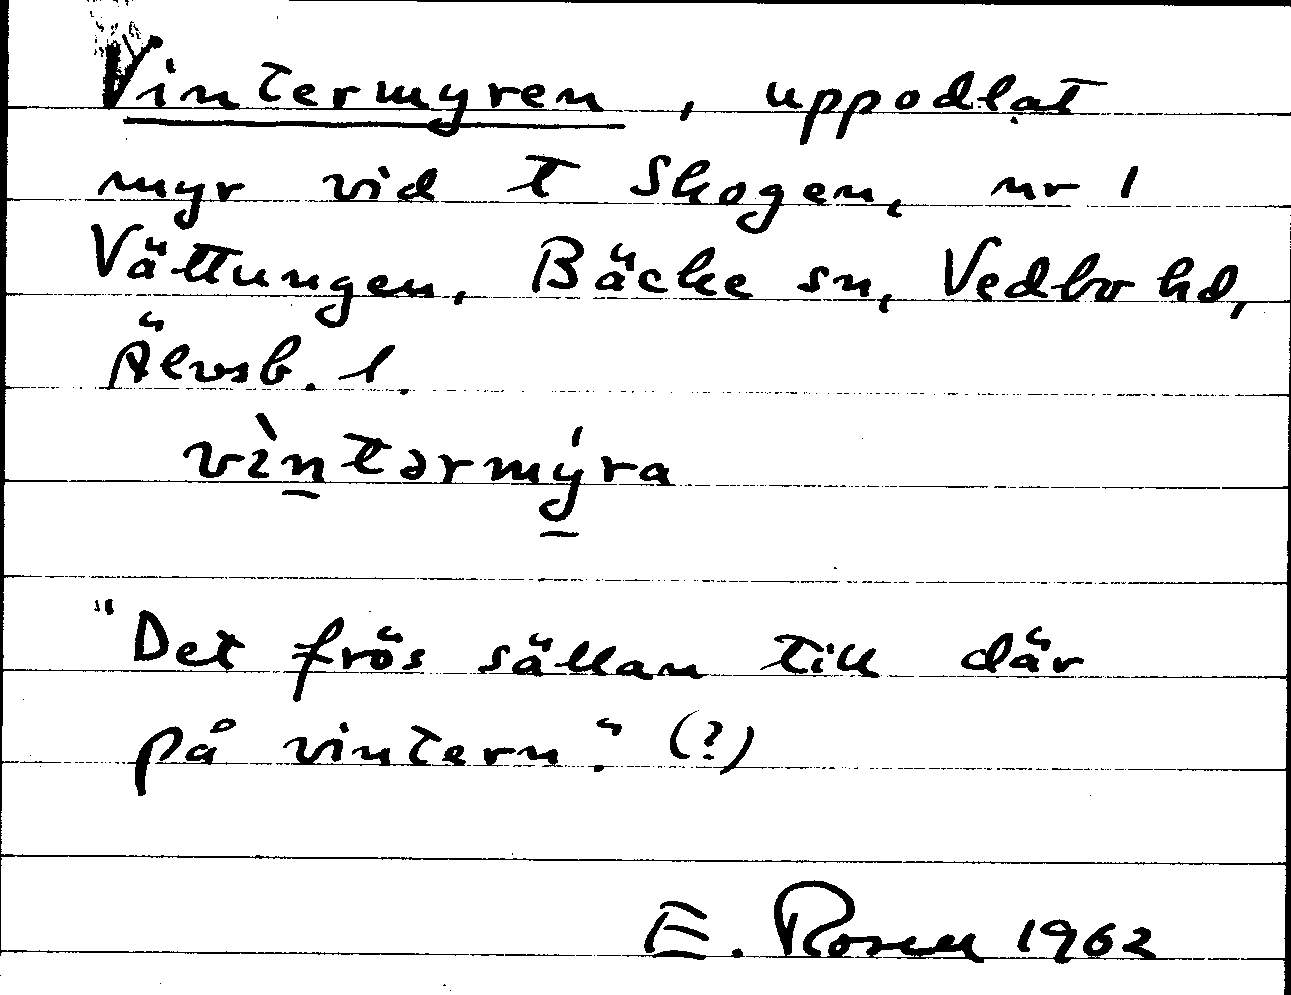 Vintermyren, uppodlat
myr vid t Skogen, nr 1
Vättungen, Bäcke sn, Vedbo hd,
Älvsb. l.
vìn̲tərmý̲ra
"Det frös sällan till där
på vintern." (?)
E. Rosell 1962